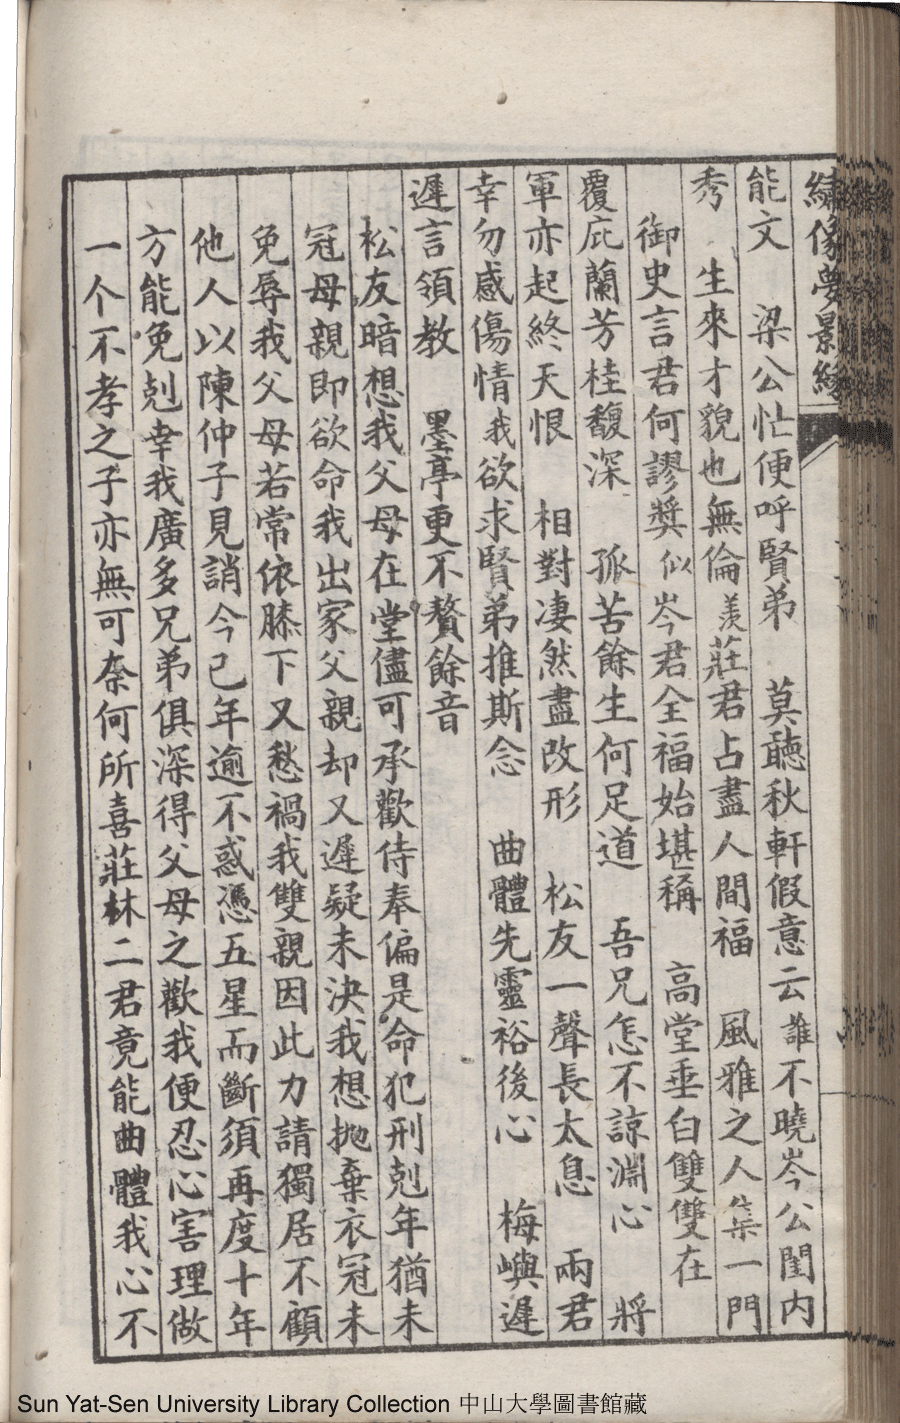 繡像夢景緣
能文　梁公忙便呼賢弟　莫聽秋軒假意云誰不曉岑公閨内
秀　生來才貌也無倫羨莊君占盡人間福　風雅之人集一門
御史言君何謬獎似岑君全福始堪稱　高堂垂白雙雙在
覆庇蘭芳桂馥深　孤苦餘生何足道　吾兄怎不諒淵心　將
軍亦起終天恨　相對凄然盡改形　松友一聲長太息　兩君
幸勿感傷情我欲求賢弟推斯念　曲體先靈裕後心　梅嶼遲
遲言領教　墨亭更不贅餘音
松友暗想我父母在堂儘可承歡侍奉偏是命犯刑剋年猶未
冠母親即欲命我出家父親却又遲疑未決我想拋棄衣冠未
免辱我父母若常依膝下又愁禍我雙親因此力請獨居不顧
他人以陳仲子見誚今已年逾不惑憑五星而斷須再度十年
方能免剋幸我廣多兄弟俱深得父母之歡我便忍心害理做
一个不孝之子亦無可奈何所喜莊林二君竟能曲體我心不
Sun Yat-Sen University Library Collection 中山大學圖書館藏